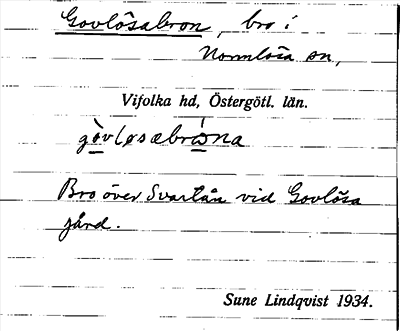 Govlösabron, bro i
Normlösa sn,
Vifolka hd, Östergötl. län.
gòvløsæbrωna
Bro över Svartån vid Govlösa
gård.
Sune Lindqvist 1934.